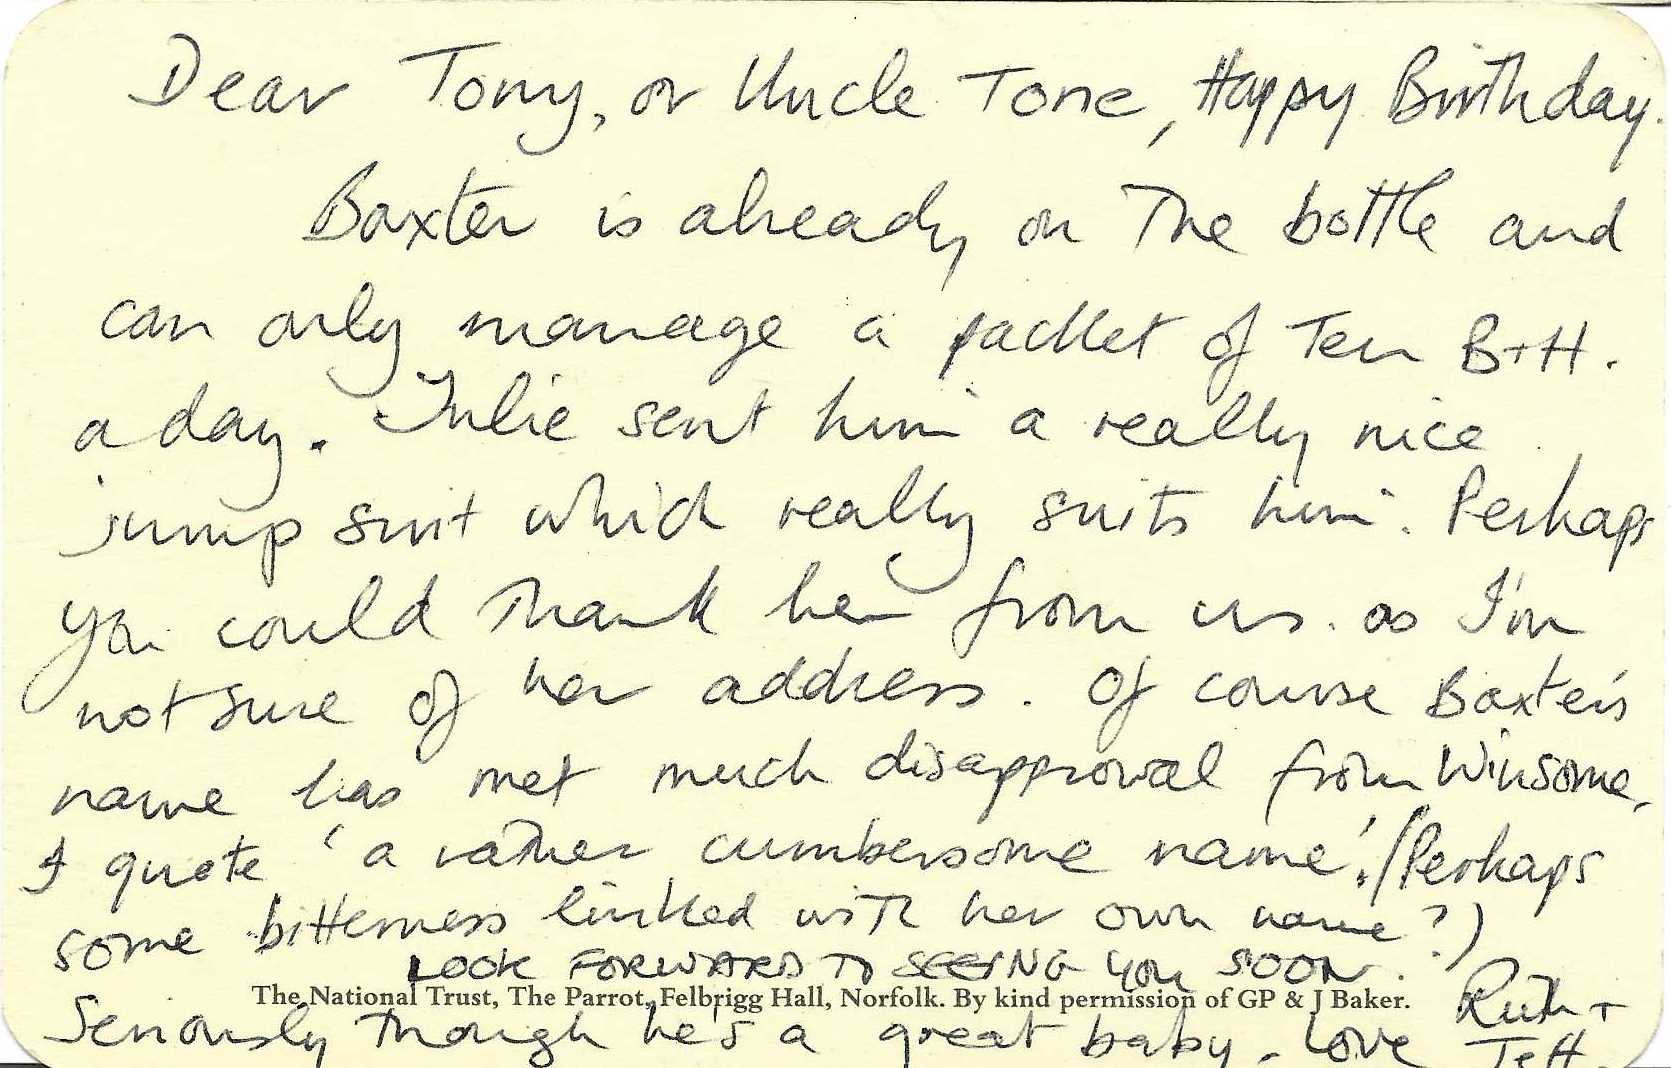 Dear Tony, or Uncle Tone, Happy Birthday.
Baxter is already on the bottle and
can only manage a packet of Ten B+H.
a day. Julie sent him a really nice
jump suit which really suits him. Perhaps
you could thank her from us. as I'm
not sure of her address. Of course Baxter's
name has met much disapproval from Winsome,
I quote 'a rather cumbersome name'. (Perhaps
some bitterness linked with her own name?)
LOOK FORWARD TO SEEING YOU SOON.
The National Trust, The Parrot, Felbrigg Hall, Norfolk. By kind permission of GP & J Baker.
Seriously though he's a great baby. Love Ruth +
Jeff.